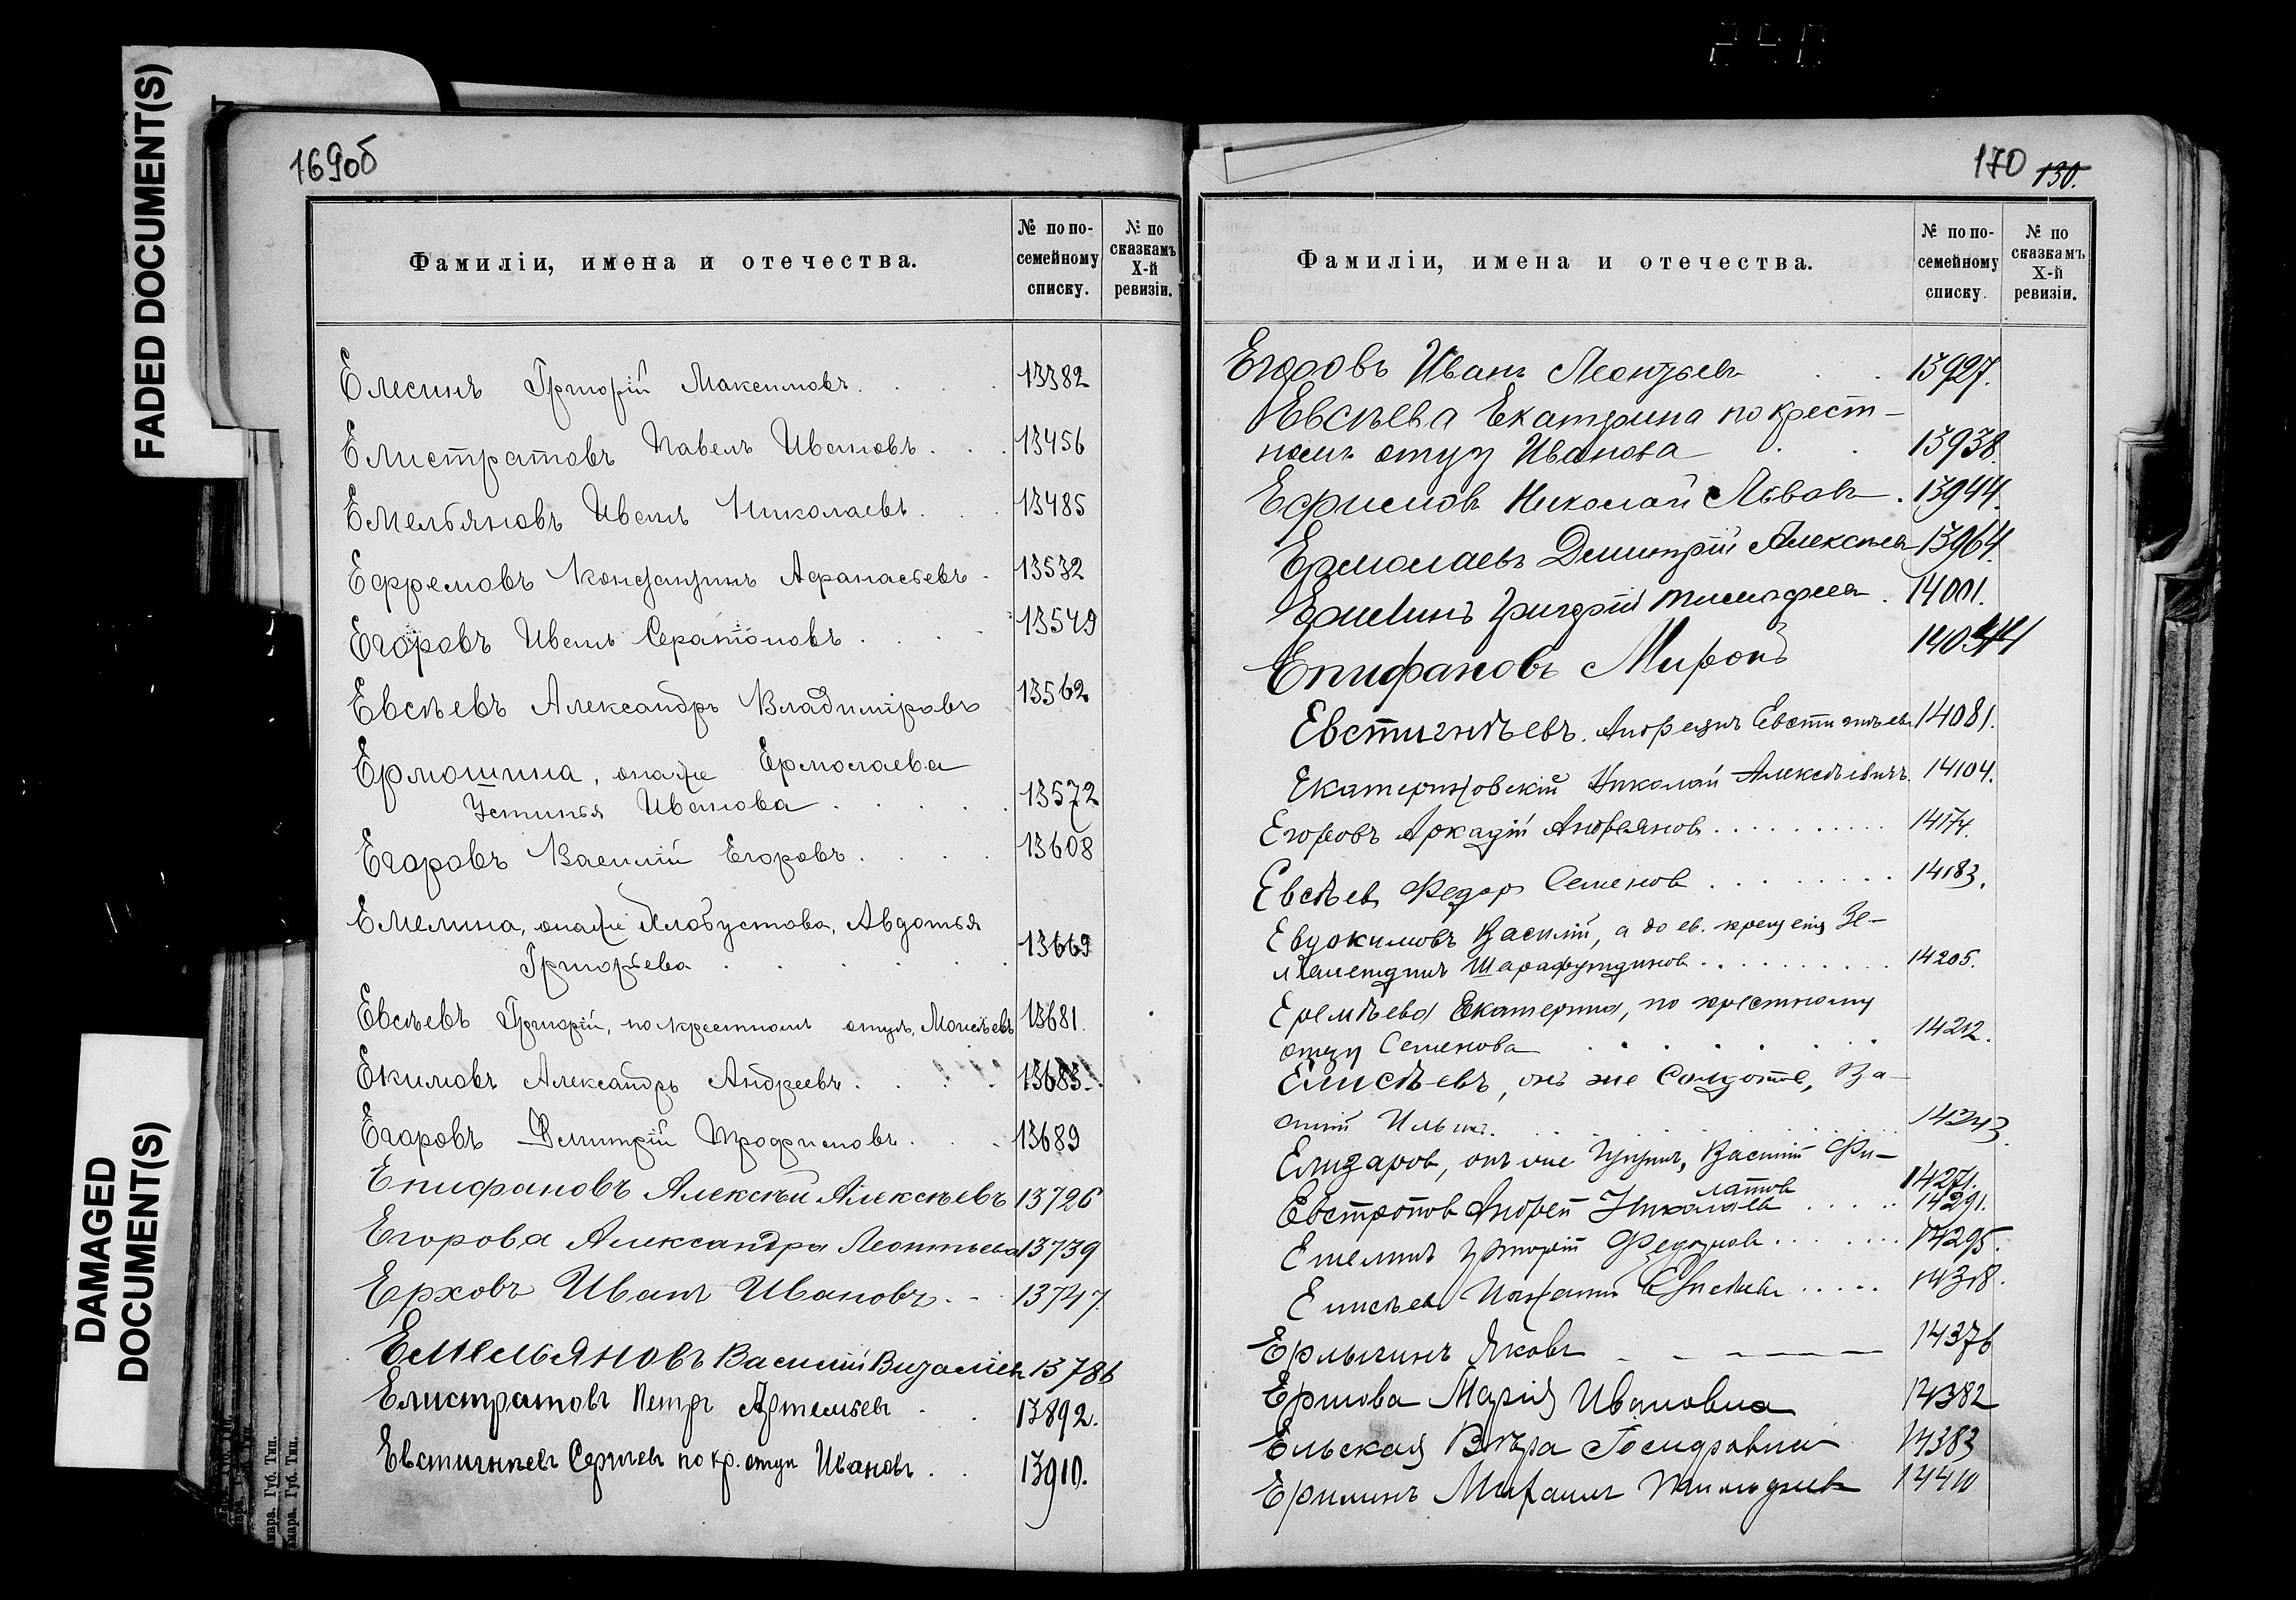 FADED DOCUMENT(S)
DAMAGED
DOCUMENT(S)
169об
Фамиліи, имена и отечества.
№ по по-
семейному
списку.
№ по
сказкамъ
X-й
ревизіи.
Елесинъ Григорій Максимовъ. 13382
Елистратовъ Павелъ Ивановъ. 13456
Емельяновъ Иванъ Николаевъ. 13485
Ефремовъ Константинъ Афанасьевъ. 13532
Егоровъ Иванъ 13549
Евсѣевъ Александръ Владиміровъ 13562
Ермошина, онаже Ермолаева
Устинья Иванова 13572
Егоровъ Василій Егоровъ. 13608
Емелина, онаже Авдотья
Григорьева 13669
Евсѣевъ Григорій, по крестному отцу, Моисѣевъ 13681.
Екимовъ Александръ Андреевъ. 13683.
Егоровъ Дмитрій Трофимовъ. 13689
Епифановъ Алексѣй Алексѣевъ 13726
Егорова Александра Леонтьева 13739
Ерховъ Иванъ Ивановъ. 13747.
Емельяновъ Василій 13786
Елистратовъ Петръ Артемьевъ 13892.
Евстигнѣевъ Сергѣевъ по кр. отцу Ивановъ. 13910.
мара. Губ. Тип.
мара. Губ. Тип.
170 130.
Фамиліи, имена и отечества.
№ по по-
семейному
списку.
№ по
сказкамъ
X-й
ревизіи.
Егоровъ Иванъ Леонтьевъ 13927.
Евсѣева Екатерина по крест-
ном отцу Иванова 13938.
Ефимовъ Николай Львовъ. 13944.
Ермолаевъ Димитрій Алексѣевъ 13964.
Григорій Тимофеев. 14001.
Епифановъ Миронъ
Евстигнѣевъ. Евстигнѣевъ 14081.
Екатериновскій Николай Алексѣевичъ. 14104.
Егоровъ Аркадій Андреянов 14174.
Евсѣев Федор Семенов 14183.
Евдокимовъ Василій, а до св. крещенія Зе-
Шарафутдинов 14205.
Еремѣева Екатерина, по крестному
отцу Семенова 14212.
Елисѣевъ, онъ же Ва-
силій Ильин. 14243.
Елизаров, онъ же Василій Фи-
латов 14271.
Андрей Николаев 14291.
Емелинъ Григорій 14295.
Елисѣев 14318.
Ерлыгинъ Яковъ 14376
Ершова Марія Ивановна 14382
Ельская Вѣра 14383
Михаилъ 14410